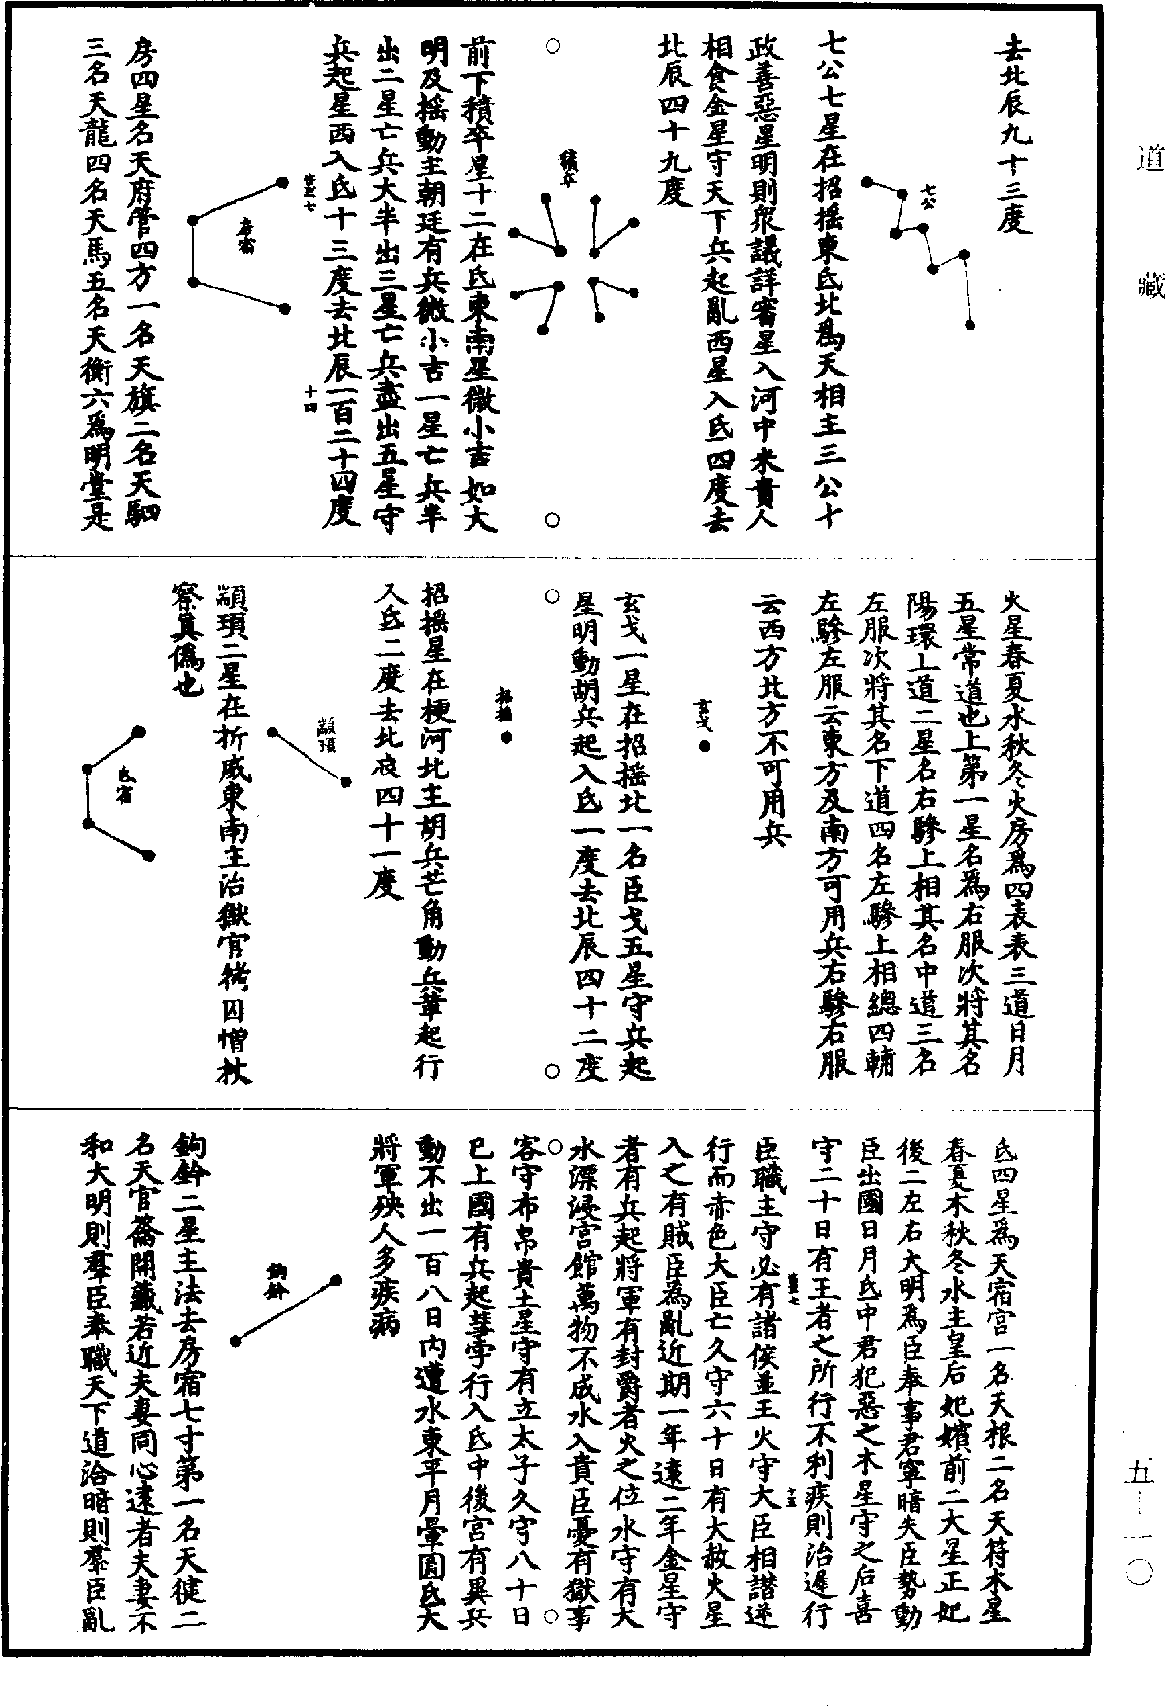 道藏
去北辰九十三度
七公
七公七星在招摇東氐北爲天相主三公十
政善惡星明則衆議詳審星入河中米貴人
相食金星守天下兵起亂西星入氐四度去
北辰四十九度
積卒
前下積卒星十二在氐東南星微小吉如大
明及摇動主朝廷有兵微小吉一星亡兵半
出二星亡兵大半出三星亡兵盡出五星守
兵起星西入氐十三度去北辰一百二十四度
十四
房宿
房四星名天府管四方一名天旗二名天駟
三名天龍四名天馬五名天衡六爲明堂是
火星春夏水秋冬火房爲四表表三道日月
五星常道也上第一星名爲右服次將其名
陽環上道二星名右驂上相其名中道三名
左服次將其名下道四名左驂上相總四輔
左驂左服云東方及南方可用兵右驂右服
云西方北方不可用兵
玄戈
玄戈一星在招摇北一名臣戈五星守兵起
星明動胡兵起入氐一度去北辰四十二度
招摇
招摇星在梗河北主胡兵芒角動兵革起行
入氐二度去北辰四十一度
顓頊
顓頊二星在折威東南主治獄官拷囚憎杖
察真僞也
氐宿
氐四星爲天宿宫一名天根二名天符木星
春夏木秋冬水主皇后妃嬪前二大星正妃
後二左右大明爲臣奉事君寧暗失臣勢動
臣出國日月氐中君犯惡之木星守之后喜
守二十日有王者之所行不利疾則治遲行
十五
臣職主守必有諸侯並王火守大臣相譖逆
行而赤色大臣亡久守六十日有大赦火星
入之有賊臣為亂近期一年遠二年金星守
者有兵起將軍有封爵者火之位水守有大
水漂浸宫館萬物不成水入貴臣憂有獄事
客守布帛貴土星守有立太子久守八十日
已上國有兵起彗孛行入氐中後宫有異兵
動不出一百八日内遭水東平月暈圓氐大
將軍殃人多疾病
鉤鈐
鉤鈐二星主法去房宿七寸第一名天健二
名天官籥開藏若近夫妻同心遠者夫妻不
和大明則羣臣奉職天下道洽暗則羣臣亂
五—一〇